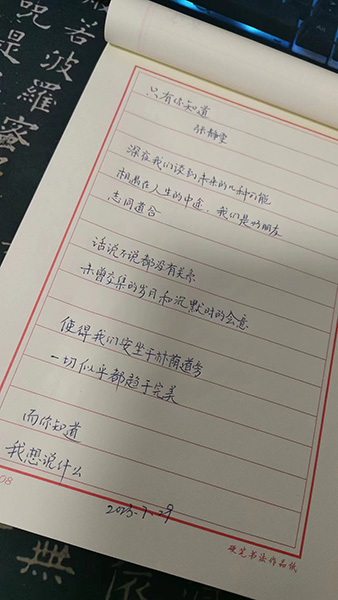 若波羅蜜
呪是
只有你知道
张静雯
深夜我们谈到未来的几种可能
相遇在人生的中途，我们是好朋友
志同道合
话说不说都没有关系
未曾交集的岁月和沉默时的会意
使得我们安坐于林荫道旁
一切似乎都趋于完美
而你知道
我想说什么
2023.7.29
硬笔书法作品纸
08
無
依